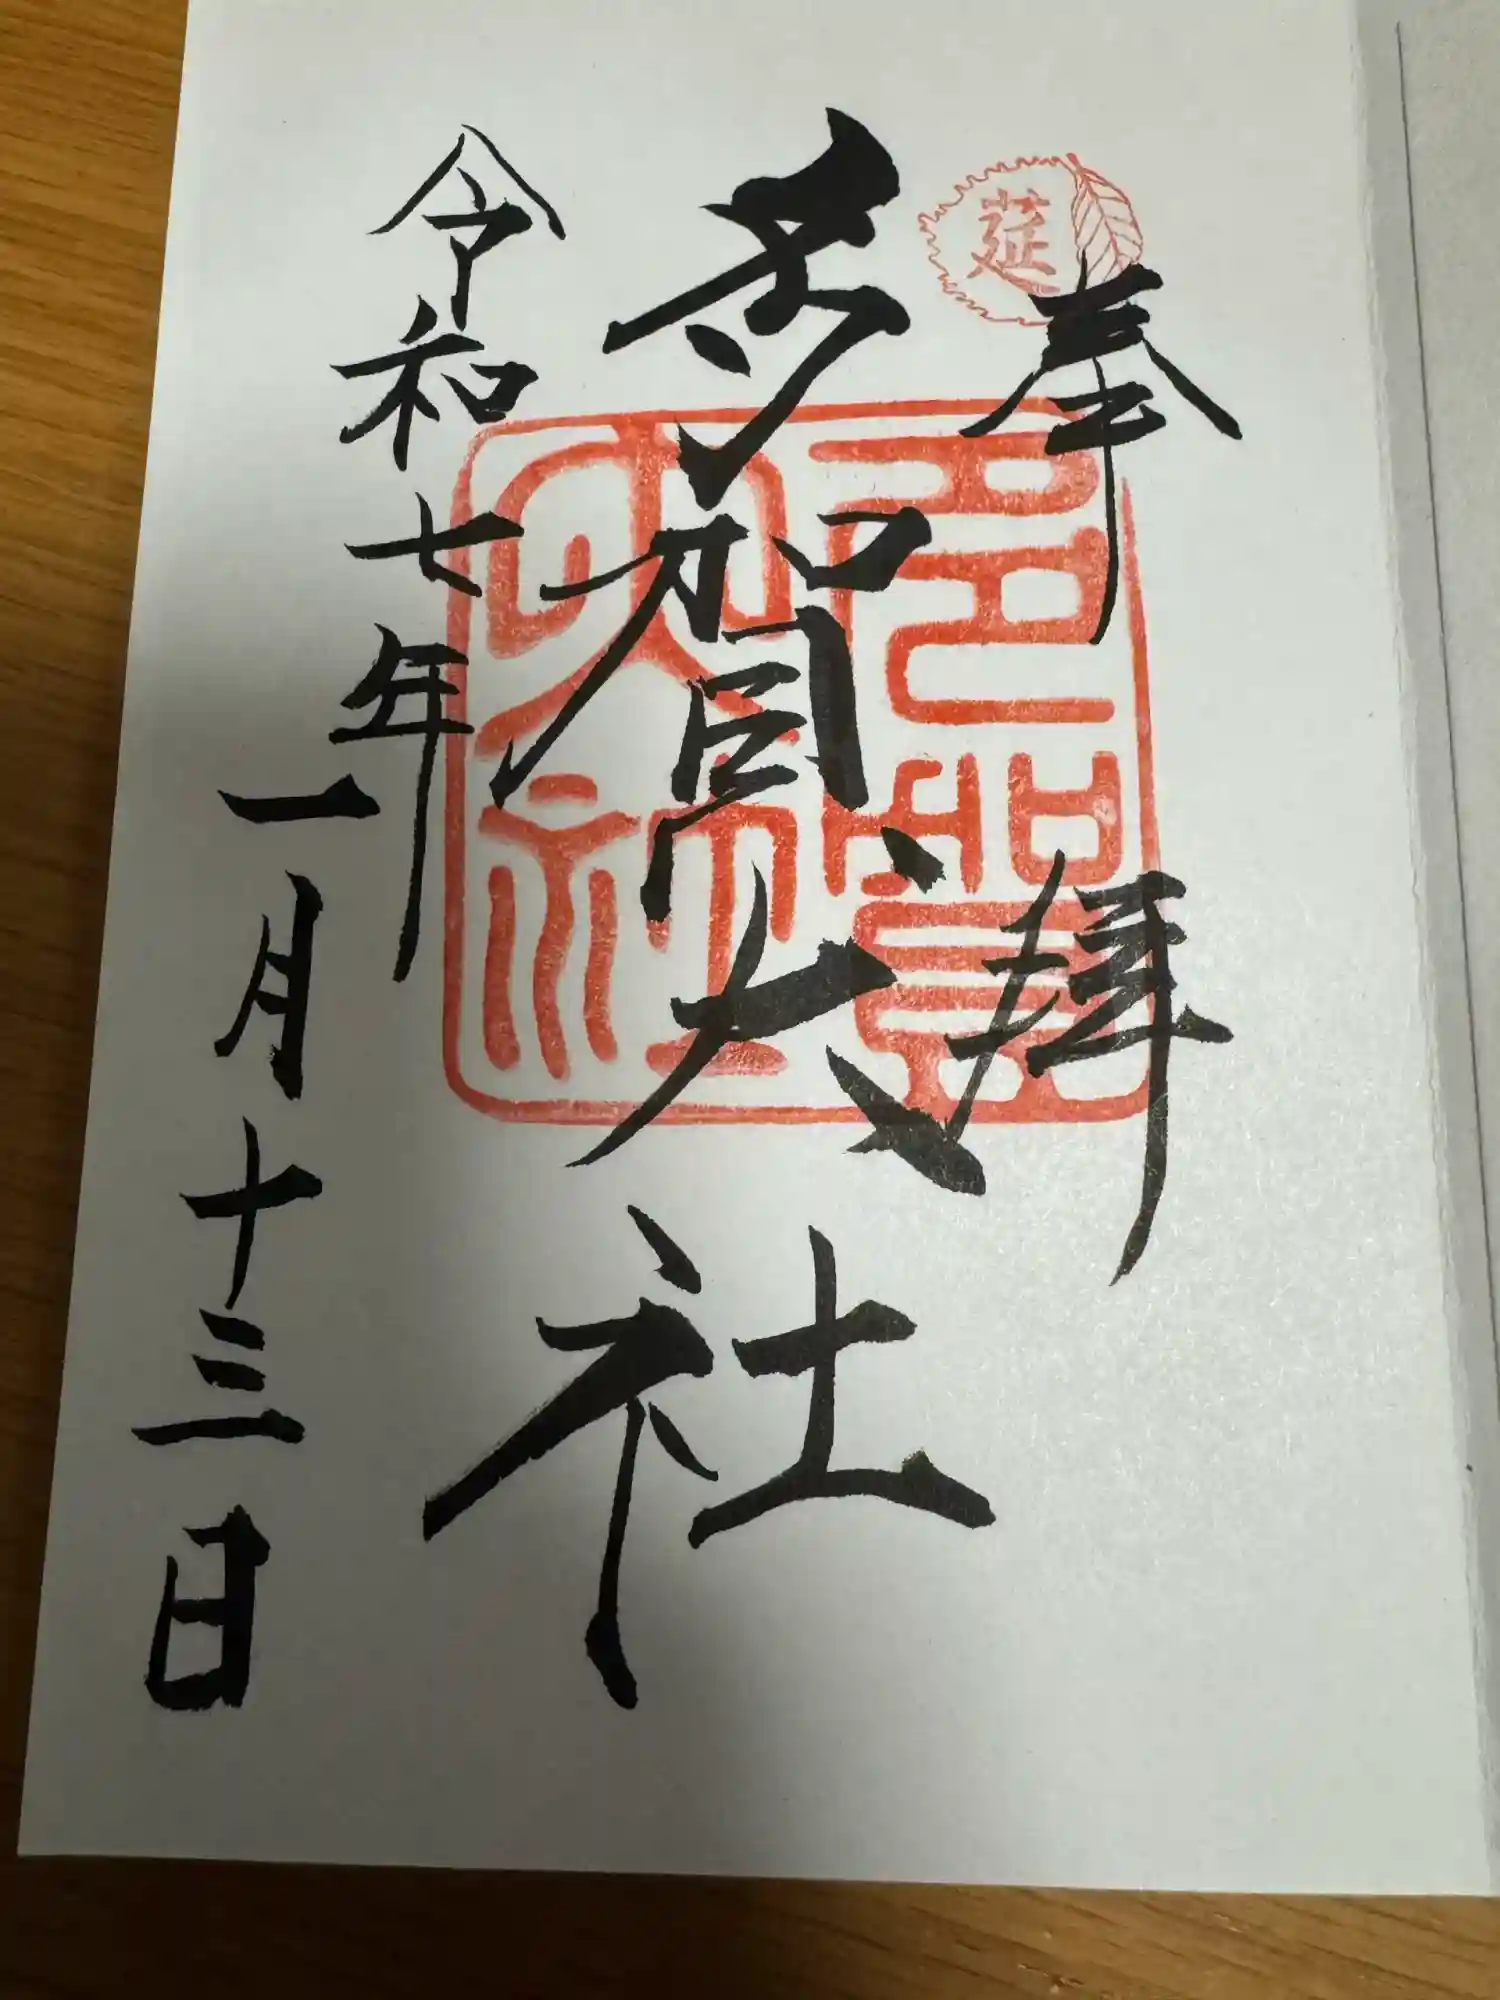 奉拝
莚
多賀大社
多賀大社
令和七年
一月十三日